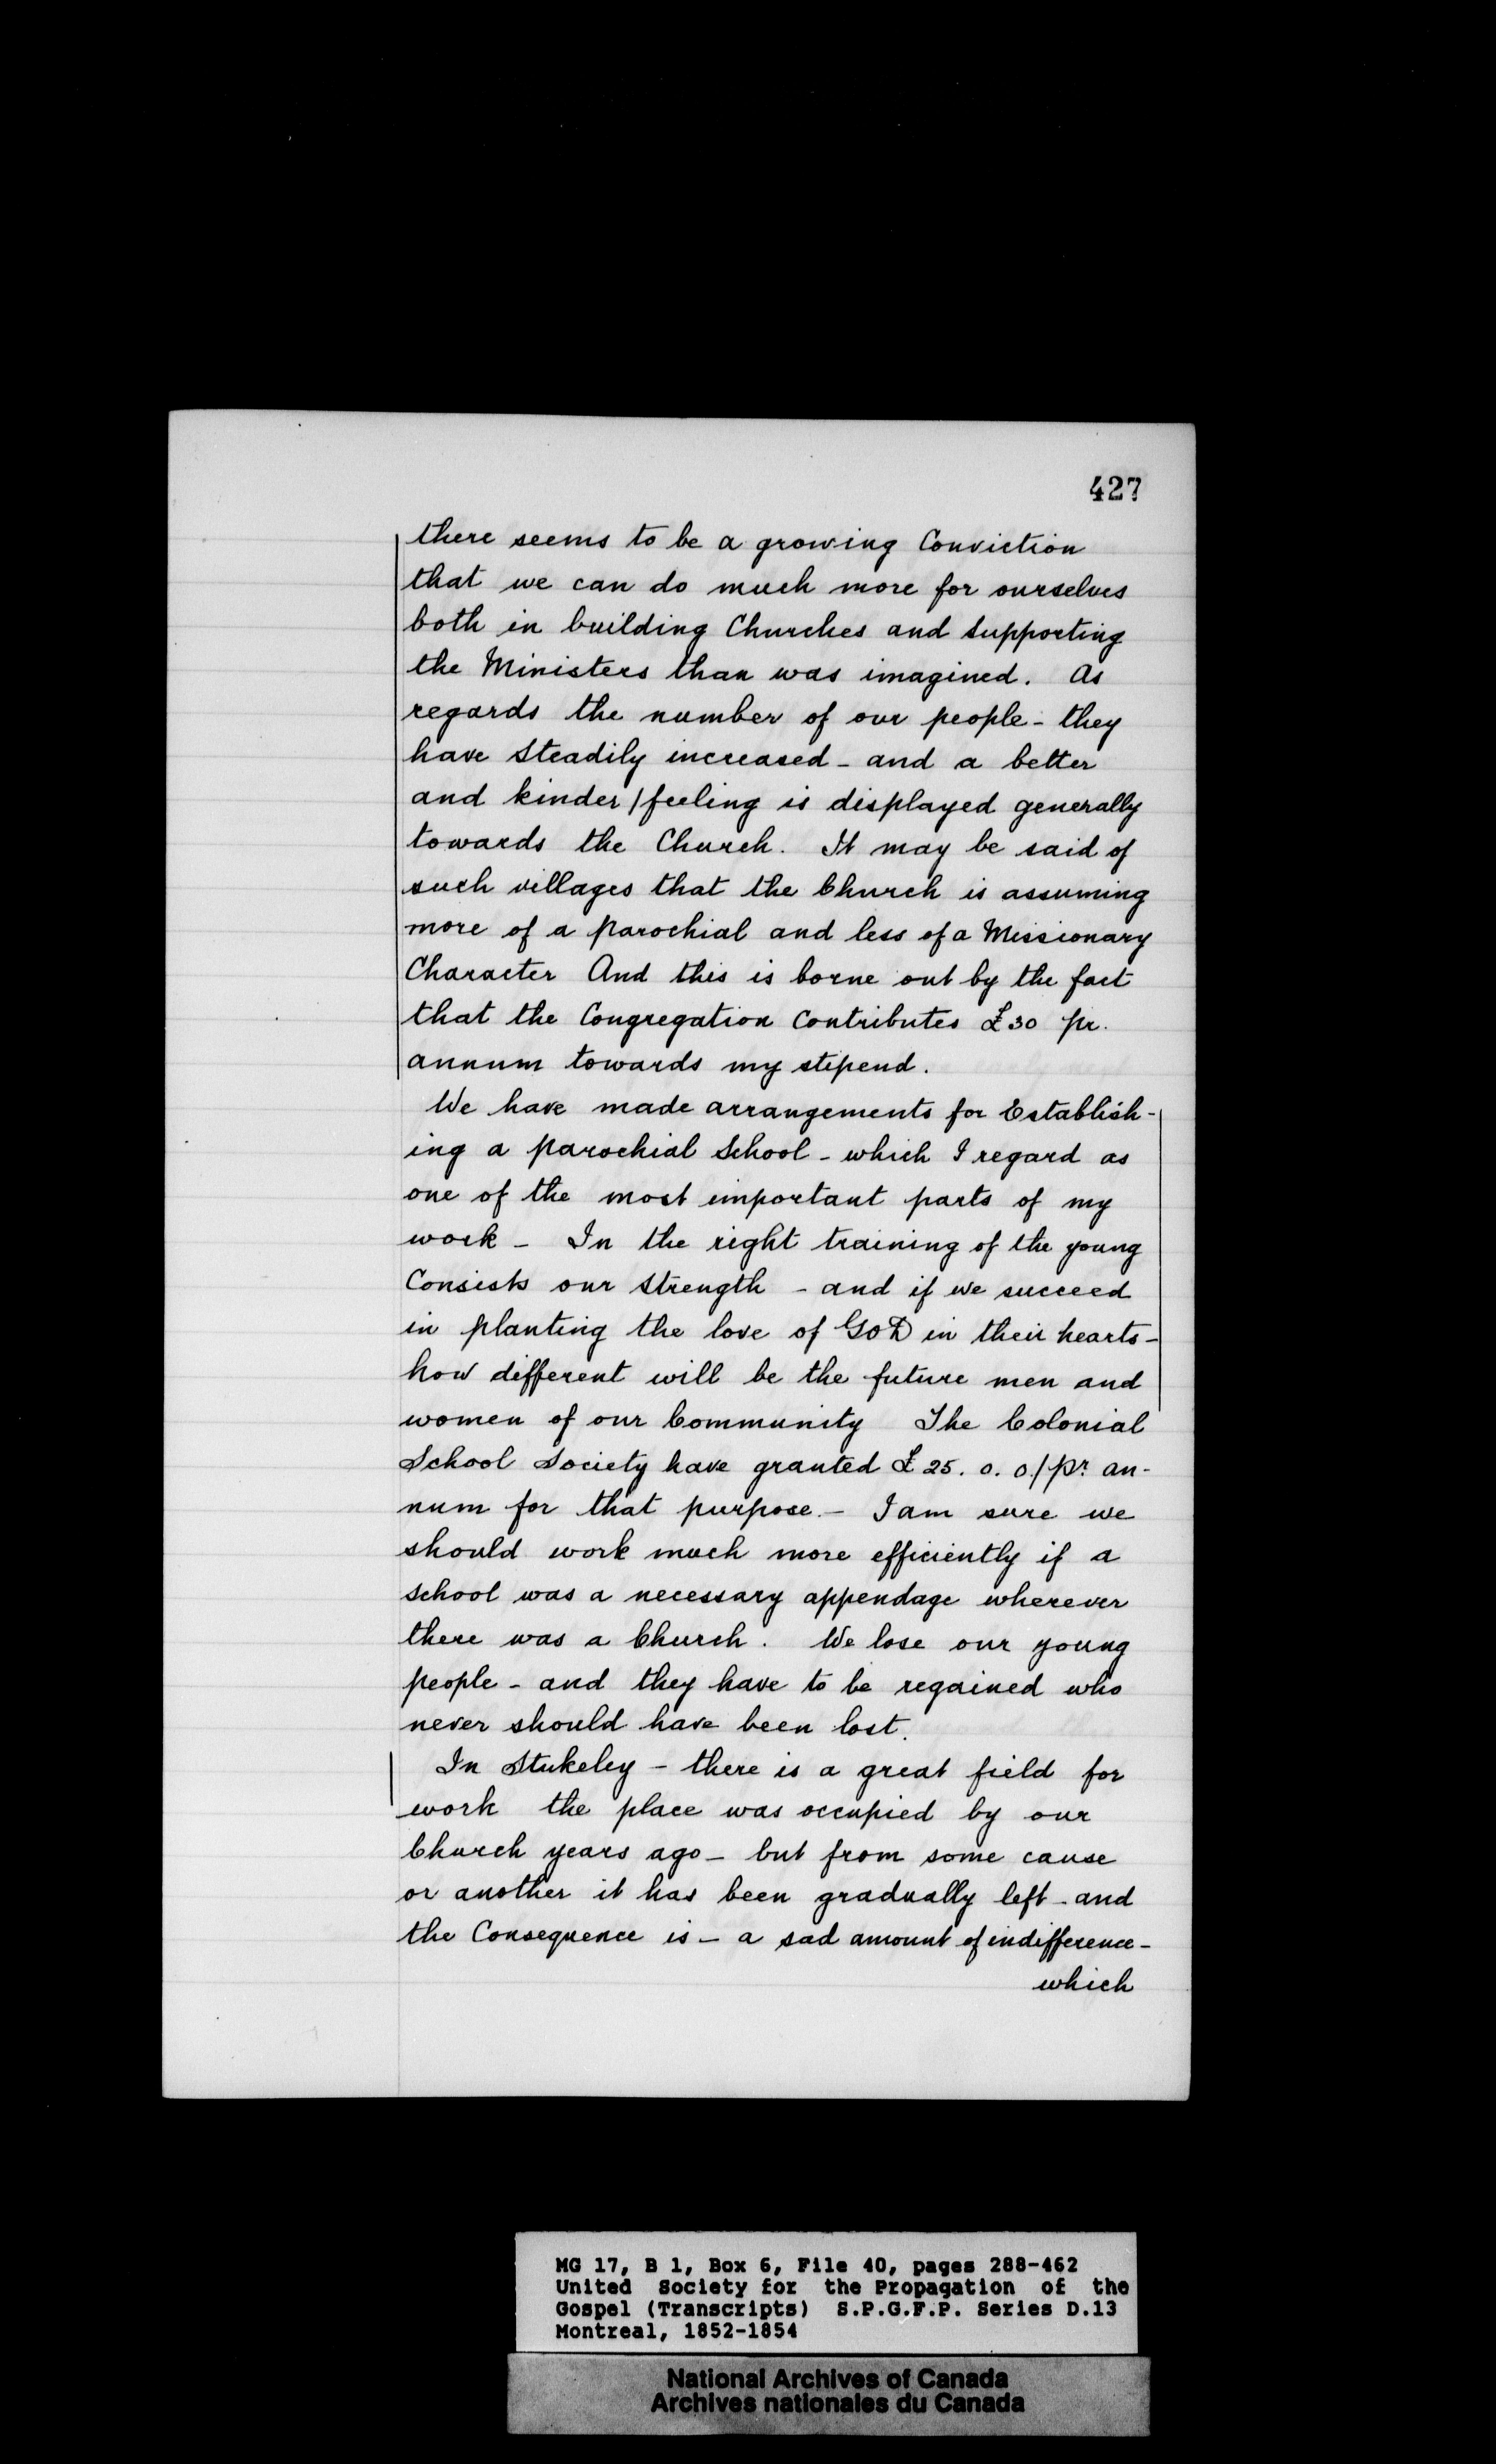 427
there seems to be a growing Conviction
that we can do much more for ourselves
both in building Churches and supporting
the Ministers than was imagined. As
regards the number of our people - they
have steadily increased - and a better
and kinder / feeling is displayed generally
towards the Church. It may be said of
such villages that the Church is assuming
more of a parochial and less of a Missionary
Character And this is borne out by the fact
that the Congregation Contributes £30 pr.
annum towards my stipend.
We have made arrangements for Establish-
ing a parochial School - which I regard as
one of the most important parts of my
work - In the right training of the young
Consists our strength - and if we succeed
in planting the love of GOD in their hearts -
how different will be the future men and
women of our Community The Colonial
School Society have granted £25. 0. 0./ pr an-
num for that purpose. - I am sure we
should work much more efficiently if a
school was a necessary appendage wherever
there was a Church. We lose our young
people - and they have to be regained who
never should have been lost.
In Stukeley - there is a great field for
work the place was occupied by our
Church years ago - but from some cause
or another it has been gradually left - and
the Consequence is - a sad amount of indifference -
which
MG 17, B 1, Box 6, File 40, pages 288-462
United Society for the Propagation of the
Gospel (Transcripts) S.P.G.F.P. Series D.13
Montreal, 1852-1854
National Archives of Canada
Archives nationales du Canada